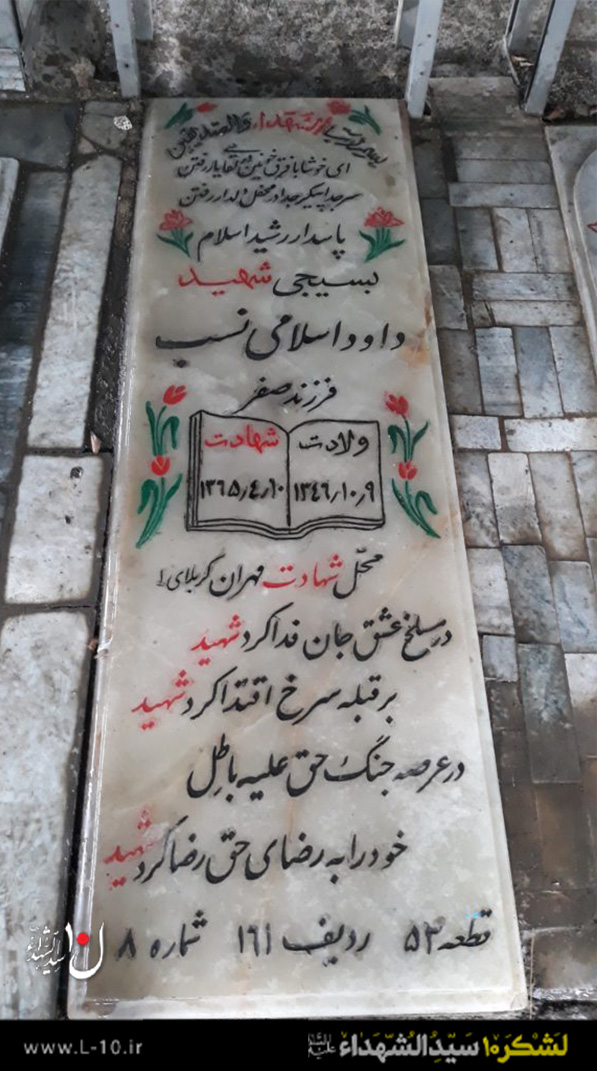 بسم رب الشهداء والصدیقین
ای خوشا با فرق خونین در لقاء یار رفتن
سر جدا پیکر جدا در محفل دلدار رفتن
پاسدار رشید اسلام
بسیجی شهید
داود اسلامی نسب
فرزند صفر
ولادت شهادت
۱۳۴۶٫۱۰٫۹ ۱۳۶۵٫۴٫۱۰
محل شهادت مهران کربلای ۱
در مسلخ عشق جان فدا کرد شهید
بر قبله سرخ اقتدا کرد شهید
در عرصه جنگ حق علیه باطل
خود را به رضای حق رضا کرد شهید
قطعه ۵۳ ردیف ۱۶۱ شماره ۸
ل۱۰ن سیدالشهداء
www.L-10.ir
لَشکَر۱۰ سَیِّدُ الشُّهَداء علیه السلام